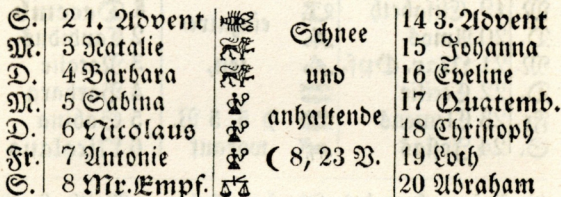 S. 2 1. Advent Schnee 14 3. Advent
M. 3 Natalie 15 Johanna
D. 4 Barbara und 16 Eveline
M. 5 Sabina anhaltende 17 Quatemb.
D. 6 Nicolaus 18 Christoph
Fr. 7 Antonie ( 8, 23 V. 19 Loth
S. 8 Mr. Empf. 20 Abraham